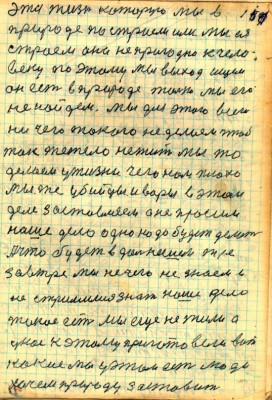 Эта жизнь которую мы в
природе построили мы ея
строили она не пригодна к чело-
веку поэтому мы выход ищем
он есть в природе только мы его
не найдем. мы для этого всего
ни чего такого не делаем чтоб
так тяжело не жить мы то
делаем у жизни чего нам плохо
мы же убийцы и воры в этом
деле заставляем а не просим
наше дело одно надо будет делать
А что будет в дальнейшем уже
завтра мы не чего не знаем и
не стремимся знать наше дело
такое есть мы еще не жили а
уже к этому приготовели вот
какие мы у этом есть люди
хочем природу заставит